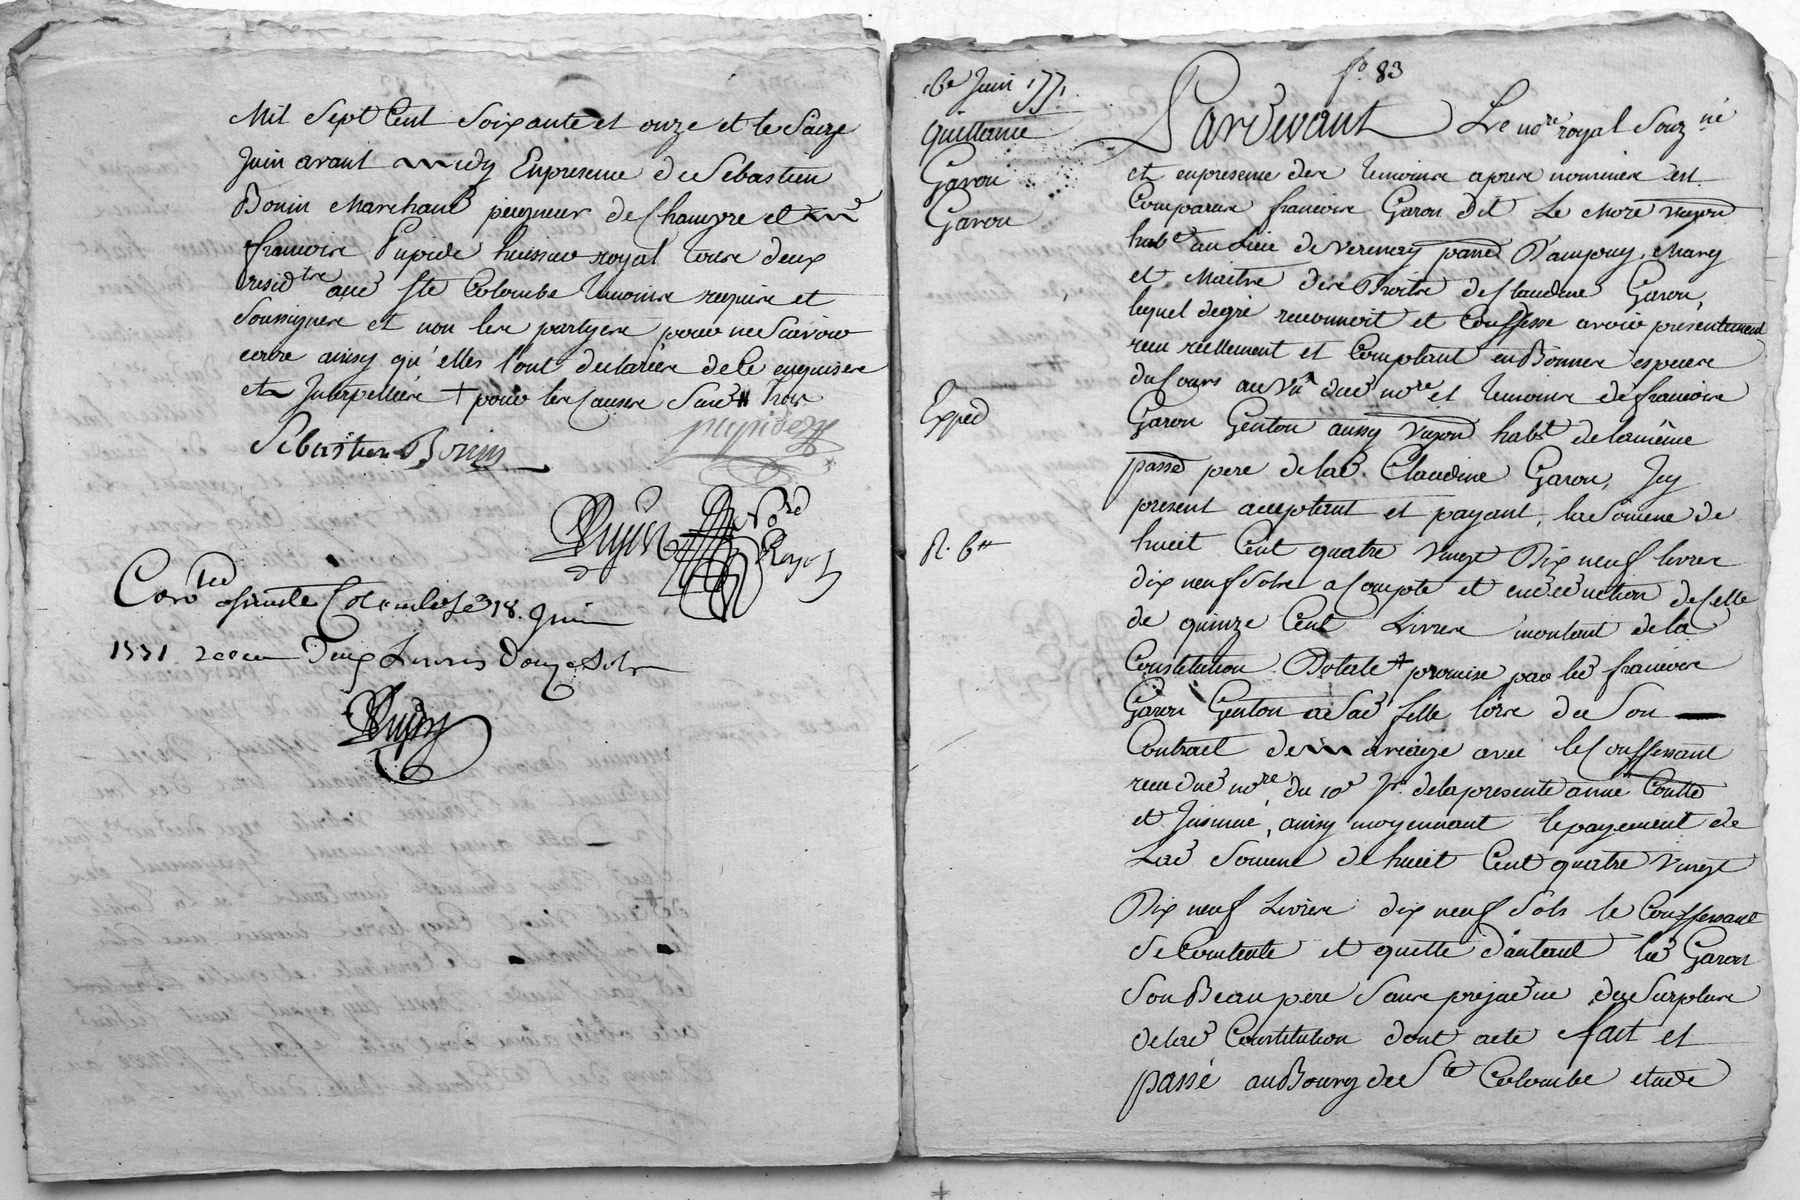 Mil Sept Cent Soixante et onze et le Saize
Juin avant midy En presence de Sebastien
Bonin Marchand peigneur de Chanvre et me
francois Pupide huissier royal tous deux
resid.tre aud Ste Colombe temoins requis et
Soussignes et non les partyes pour ne Scavoir
ecrire ainsy qu'elles l'ont declarees de ce enquises
et Interpellées + pour les Causes Sud
Sebastien Bonin
pupide
No.re
Royal
Con.lé a Sainte Colombe le 18. Juin
1771 recu Deux Livres Douze Sols
f.o 83
16e Juin 1771.
Quittance
Garon
Garon
Exped
R. 6 ₶
Pardevant Le no.re royal Souz.né
et en presence des temoins apres nommes est
Comparu francois Garon dit Le More vigon
hab.t au Lieu de Vernay passe D'ampouy, Mary
et Maitre des Droits de Claudine Garon,
lequel degré reconnoit et Confesse avoir présentement
recu réellement et Comptant en Bonnes especes
du Cours au Vu dud no.re et temoins de francois
Garon Genton aussy vigon hab.t de la même
passe pere de lad Claudine Garon, Icy
present acceptant et payant, la Somme de
huit Cent quatre Vingt Dix neuf livres
dix neuf Sols a Compte et en deduction de Celle
de quinze Cent Livres montant de la
Constitution Dotale + promise par led francois
Garon Genton a Sad fille lors de Son
Contract de mariage avec le Confessant
recu dud no.re du 10e de la presente année Contté
et Insinué, ainsy moyennant le payement de
Lad Somme de huit Cent quatre Vingt
Dix neuf Livres dix neuf Sols le Confessant
Se Contente et quitte d'autant led Garon
Son Beau pere Sans prejudice du Surplus
de lad Constitution dont acte fait et
passé au Bourg de Ste Colombe etude